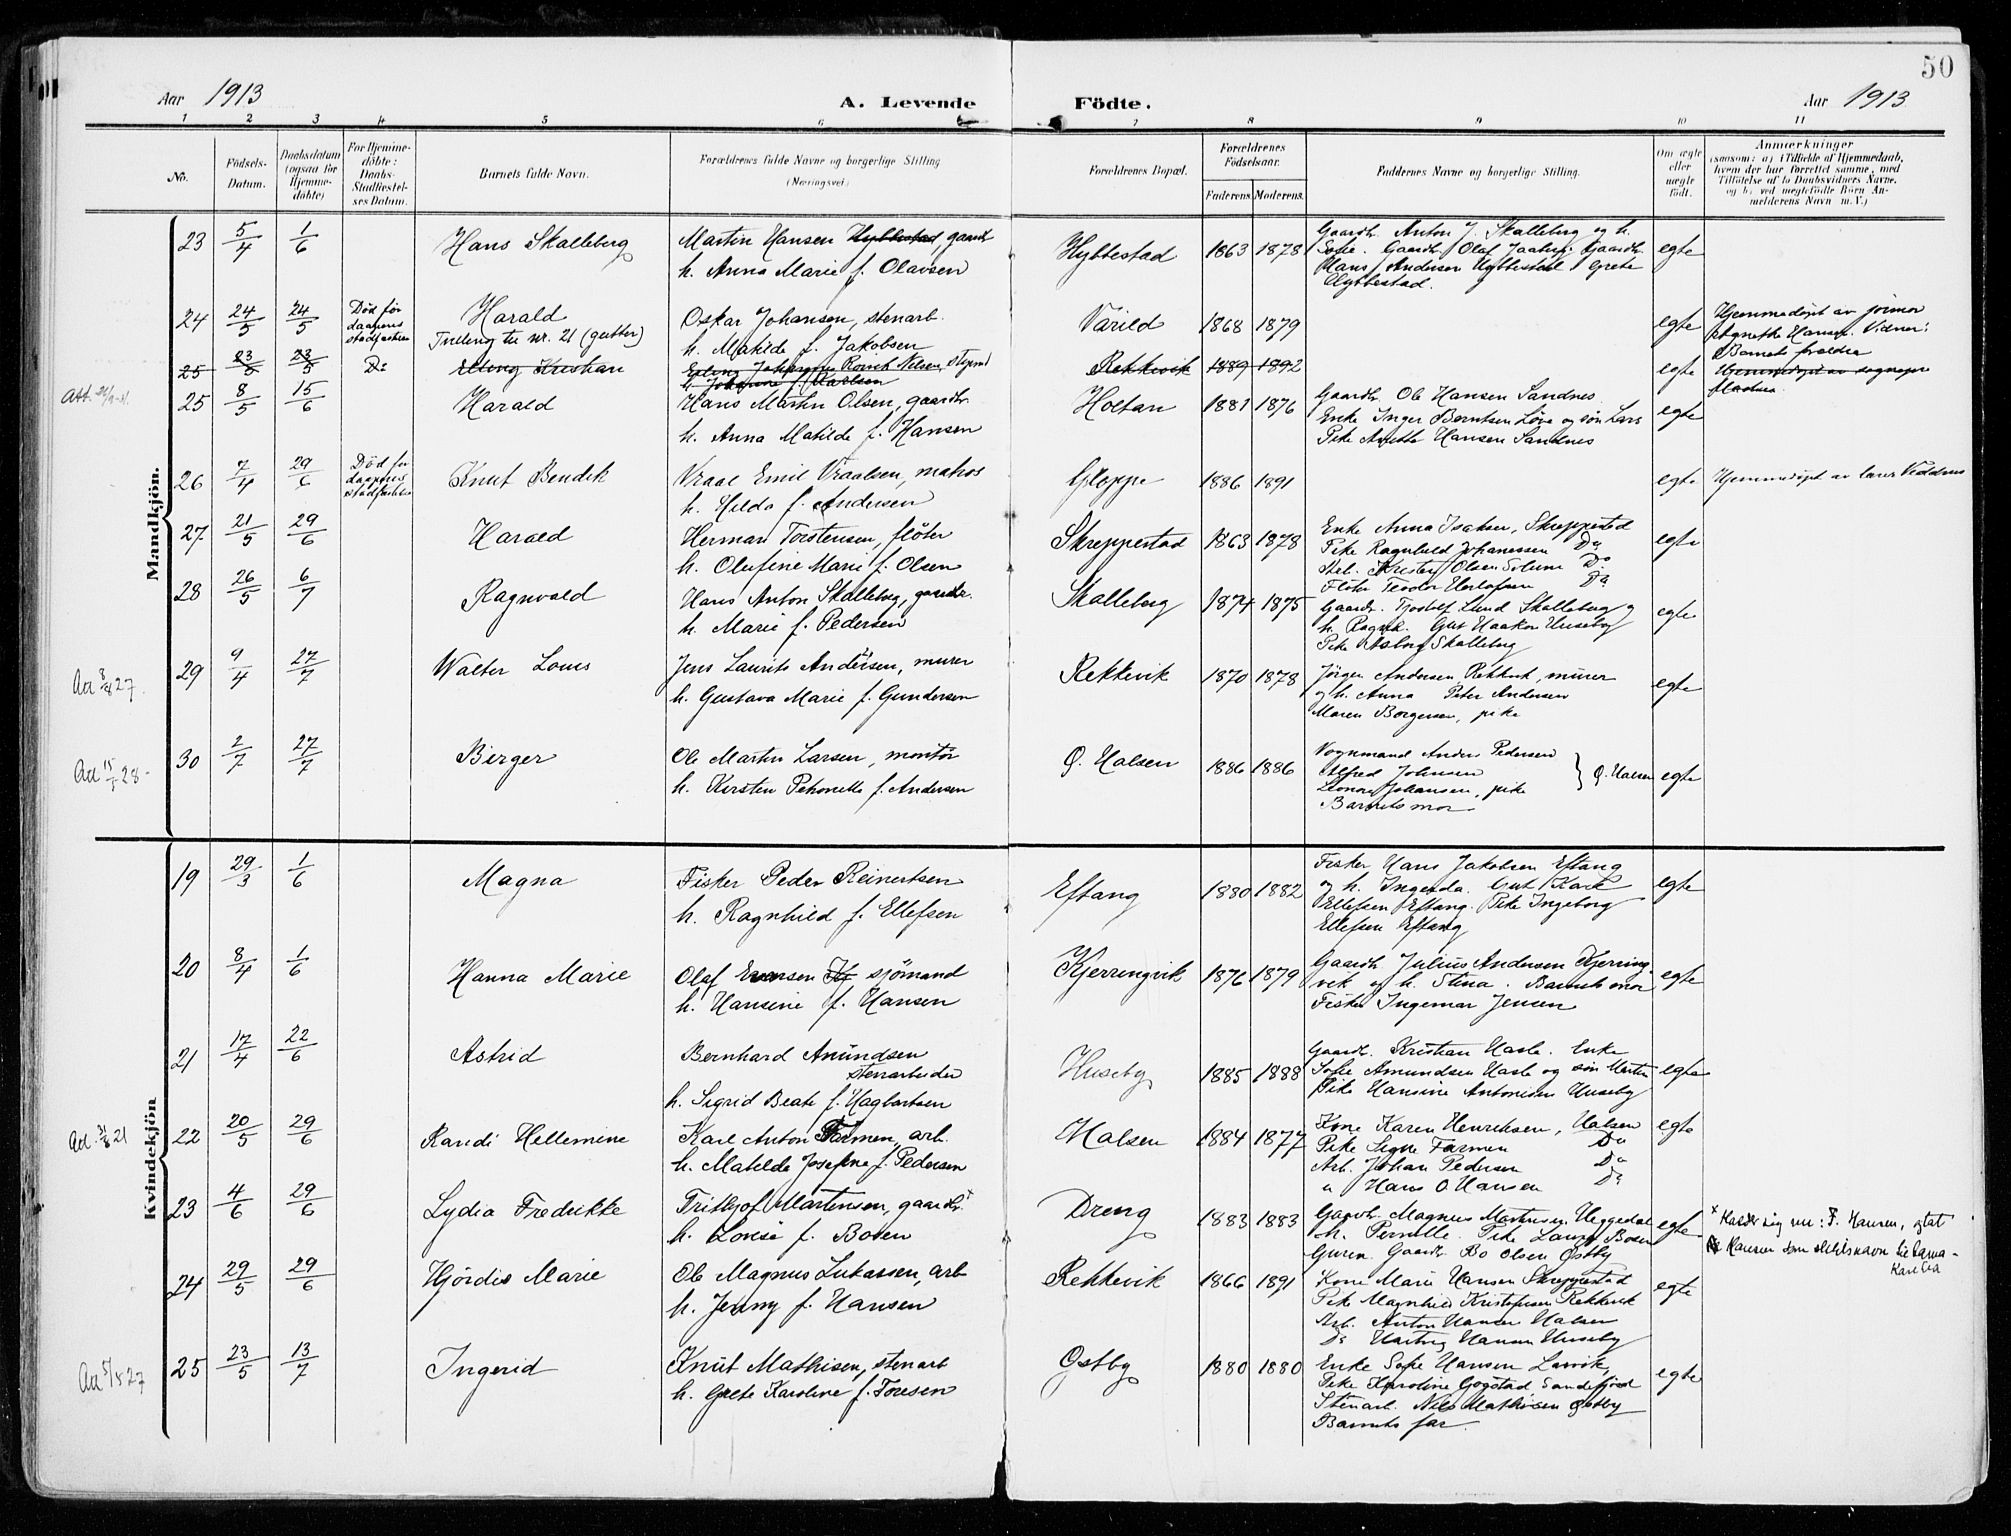 50
Aar 1913
A. Levende Födte.
Aar 1913
1 2 3 4 5 6 7 8 9 10 11
No.
Födsels-Datum.
Daabsdatum (ogsaa for Hjemme-döbte)
For Hjemme-döbte: Daabs-Stadfæstel-ses Datum.
Barnets fulde Navn.
Forældrenes fulde Navne og borgerlige Stilling
(Næringsvei.)
Forældrenes Bopæl.
Forældrenes Födselsaar.
Faderens Moderens.
Faddernes Navne og borgerlige Stilling.
Om ægte eller uægte födt.
Anmærkninger
(saasom: a) i Tilfælde af Hjemmedaab, hvem der har forrettet samme, med Tilföielse af to Daabsvidners Navne, og b) ved uægtefödte Börn An-melderens Navn m. V.)
Mandkjön.
23 5/4 1/6 Hans Skalleberg
Martin Hansen Hybbestad gaardbr
h. Anna Marie f. Olavsen
Hybbestad 1863 1878
Gaardbr. Anton J. Skalleberg og h.
Sofie. Gaardbr. Olaf Jaaberg. Gaardbr.
Hans Andersen Hybbestad Grete
Hybbestad.
egte
24 24/5 24/5 Død før daapens stadfæstelse
Harald
Tvilling til nr. 21 (gutter)
Oskar Johansen, stenarb.
h. Matilde f. Jakobsen
Värild 1868 1879 egte
Hjemmedøpt av jormor
Agnethe Hansen. Vidner:
Barnets forældre
25 23/5 23/5 Do Erling Kristian
h. Johanne f. Karlsen
Rekkevik 1889 1892 egte
Hjemmedøpt av sognepr
25 8/5 15/6 Harald
Hans Martin Olsen, gaardbr.
h. Anna Matilde f. Hansen
Holtan 1881 1876
Gaardbr. Ole Hansen Sandnes.
Enke Inger Berntsen Løve og søn Lars
Pike Anette Hansen Sandnes
egte
26 7/4 29/6 Død før daapens stadfæstelse
Knut Bendik
Vraal Emil Vraalsen, matros
h. Hilda f. Andersen
Gloppe 1886 1891 egte
Hjemmedøpt av lærer Veddnes
27 21/5 29/6 Harald
Herman Torstensen, fløter
h. Olufine Marie f. Olsen
Skreppestad 1863 1878
Enke Anna Isaksen, Skreppestad
Pike Ragnhild Johannessen Do
Arb. Kristen Olsen Solum Do
Fløter Teodor Herlofsen Do
egte
28 26/5 6/7 Ragnvald
Hans Anton Skalleberg, gaardbr.
h. Marie f. Pedersen
Skalleberg 1874 1875
Gaardbr. Tjodolf Lund Skalleberg og
h. Ragnh. Gut Haakon Huseby
Pike Asborg Skalleberg
egte
Att 8/8 27.
29 9/4 27/7 Walter Louis
Jens Laurits Andersen, murer
h. Gustava Marie f. Gundersen
Rekkevik 1870 1878
Jörgen Andersen Rekkevik, murer
og h. Anna Peter Andersen
Maren Borgersen, pike
egte
30 2/7 27/7 Birger
Ole Martin Larsen, montør
h. Kirsten Petronelle f. Andersen
Ø. Halsen 1886 1886
Vognmand Anders Pedersen
Alfred Johnsen
Leonora Johansen, pike
Barnets mor
Ø. Halsen
egte
Kvindekjön
19 29/3 1/6 Magna
Fisker Peder Reinertsen
h. Ragnhild f. Ellefsen
Eftang 1880 1882
Fisker Hans Jakobsen Eftang
og h. Ingerda. Gut Karl
Ellefsen Eftang. Pike Ingeborg
Ellefsen Eftang
egte
20 8/4 1/6 Hanna Marie
Olaf Evensen sjömand
h. Hansine f. Hansen
Kjerringvik 1876 1879
Gaardbr. Julius Andersen Kjerring
vik og h. Stina. Barnets mor
Fisker Ingemar Jensen
egte
21 17/4 22/6 Astrid
Bernhard Amundsen
stenarbeider
h. Sigrid Beate f. Hagbartsen
Huseby 1885 1888
Gaardbr. Kristian Hasle. Enke
Sofie Amundsen Hasle og søn Martin
Pike Hansine Antonisen Huseby
egte
22 20/5 29/6 Randi Hellemine
Karl Anton Farmen, arb.
h. Matilde Josefine f. Pedersen
Halsen 1884 1877
Kone Karen Henriksen, Halsen
Pike Signe Farmen Do
Arb. Johan Pedersen Do
" Hans O. Hansen Do
egte
23 4/6 29/6 Lydia Fredrikke
Frithjof Martinsen, gaardbr. x
h. Lovise f. Boten
Dreng 1883 1883
Gaardbr. Magnus Martinsen Heggedal
h. Pernille. Pike Laura Bosen
Guren. Gaardbr. Bo Olsen Østby
egte
x Kalder sig nu: F. Hansen, agtat
Hansen som slektsnavn
24 29/5 29/6 Hjördis Marie
Ole Magnus Lukassen, arb
h. Jenny f. Hansen
Rekkevik 1866 1891
Kone Marie Hansen Skreppestad
Pike Magnhild Kristofersen Rekkevik
Arb. Anton Hansen Halsen
Do Hartvig Hansen Huseby
egte
25 23/5 13/7 Ingerid
Knut Mathisen, stenarb
h. Grete Karoline f. Toresen
Østby 1880 1880
Enke Sofie Hansen Larvik,
Pike Karoline Gogstad, Sandefjord
Stenarb. Nils Mathisen Østby
Barnets far.
egte